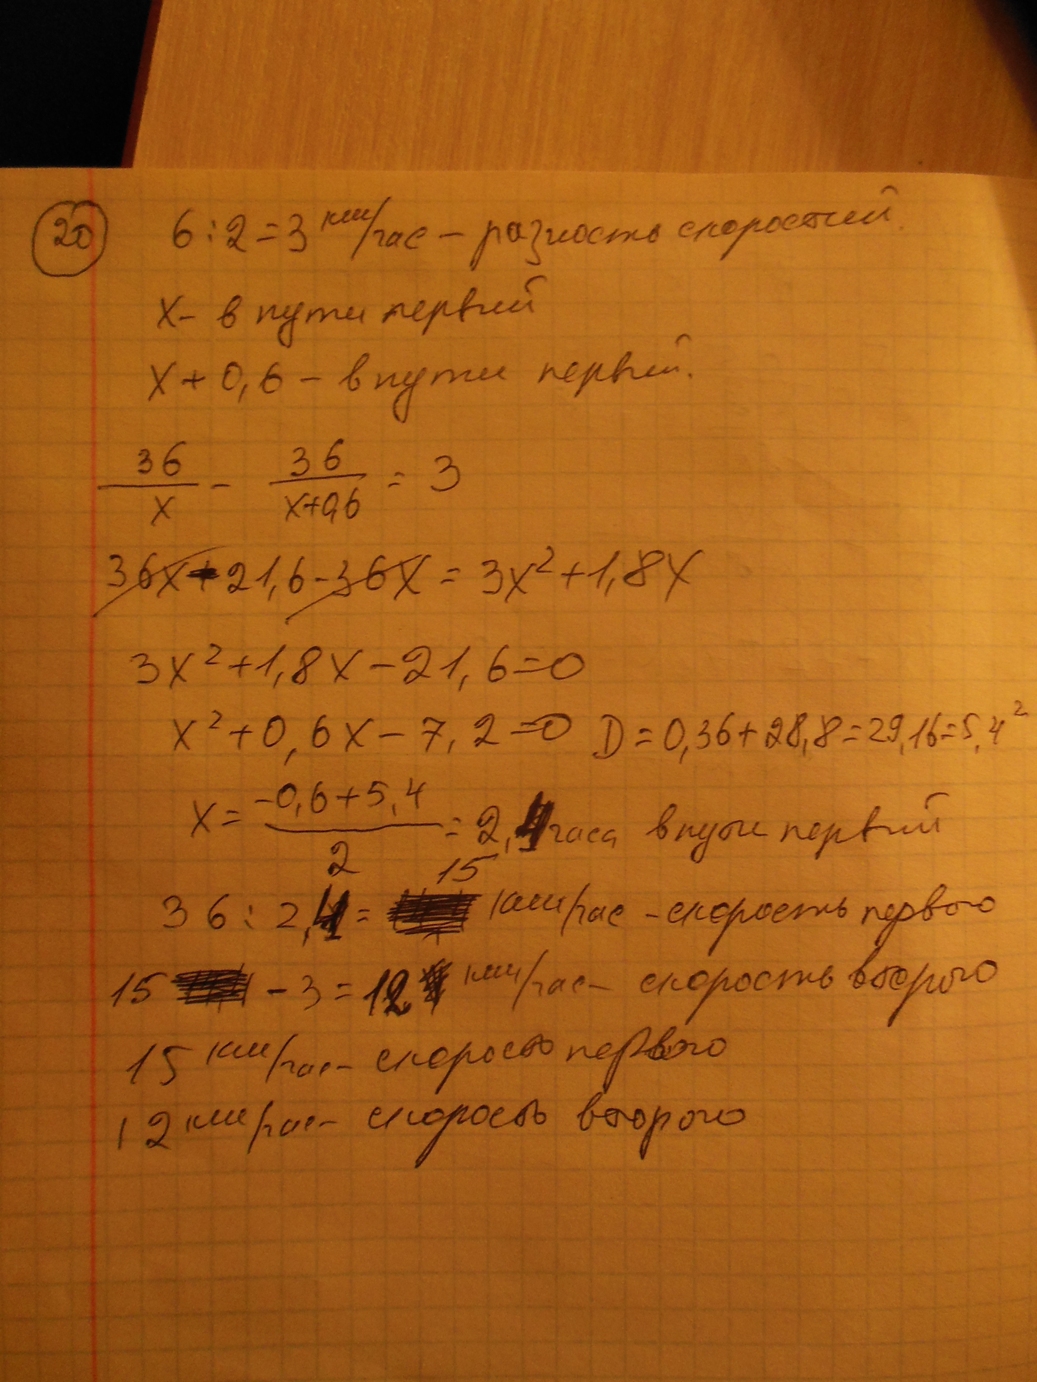 20 6:2=3 км/час - разность скоростей.
x- в пути первый
x+0,6 - в пути первый.
36/x - 36/(x+0,6) = 3
36x+21,6-36x=3x²+1,8x
3x²+1,8x-21,6=0
x²+0,6x-7,2=0 D=0,36+28,8=29,16=5,4²
x=(-0,6+5,4)/2=2,4 часа в пути первый
36:2,4= 15 км/час - скорость первого
15 -3=12 км/час- скорость второго
15 км/час- скорость первого
12 км/час- скорость второго